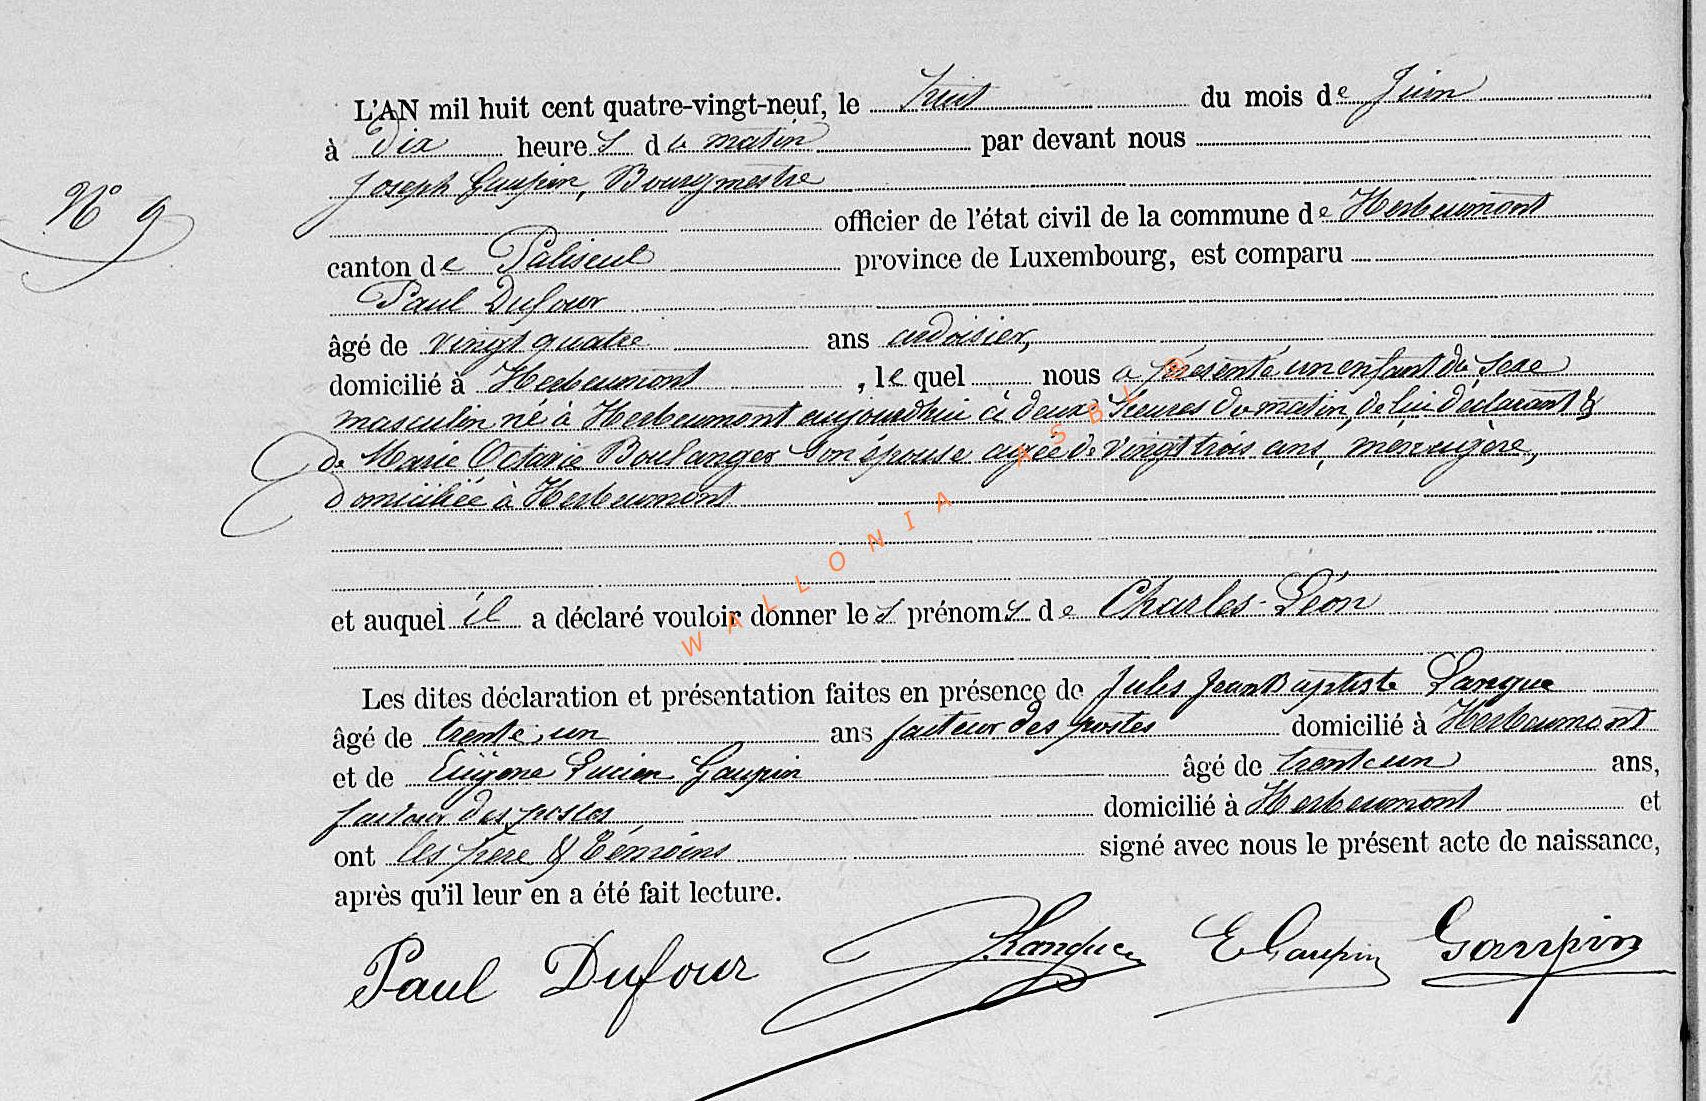 L'AN mil huit cent quatre-vingt-neuf, le huit du mois de Juin
à Dix heures de matin par devant nous
Joseph Gaupin, Bourgmestre
N° 9
officier de l'état civil de la commune de Herbeumont
canton de Paliseul province de Luxembourg, est comparu
Paul Dufour
âgé de vingt quatre ans ardoisier,
domicilié à Herbeumont, lequel nous a présenté un enfant du sexe
masculin né à Herbeumont aujourdhui à deux heures du matin, de lui déclarant &
de Marie Octavie Boulanger son épouse agée de vingt trois ans, ménagère,
domiciliée à Herbeumont
et auquel il a déclaré vouloir donner les prénoms de Charles-Léon
Les dites déclaration et présentation faites en présence de Jules Jean Baptiste Lanque
âgé de trente un ans facteur des postes domicilié à Herbeumont
et de Eugène Lucien Gaupin âgé de trente un ans,
facteur des postes domicilié à Herbeumont et
ont les père & témoins signé avec nous le présent acte de naissance,
après qu'il leur en a été fait lecture.
Paul Dufour J. Lanque E Gaupin Gaupin
WALLONIA ASBL ©